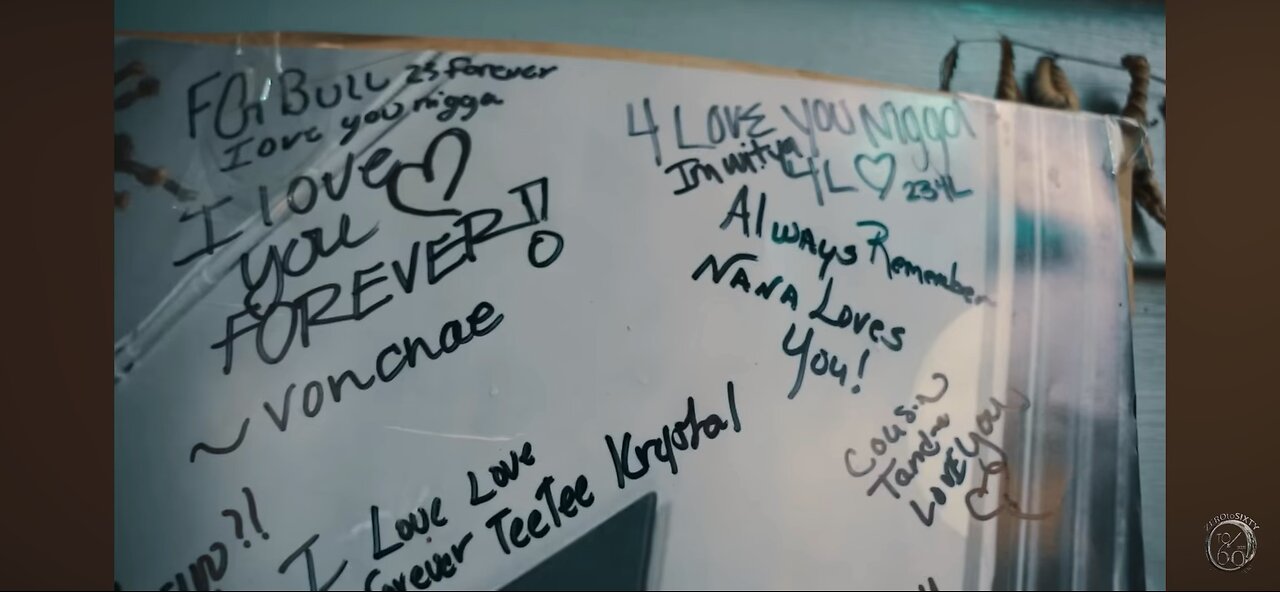 FG Bull 23 forever
I love you nigga
I love
you
FOREVER!!
~vonchae
4 LOVE YOU Nigga
Im wit ya
4L 234L
Always Remember
NANA Loves
You!
Cousin
LOVE YOU
I Love Love
forever TeeTee Krystal
ZEROtoSIXTY